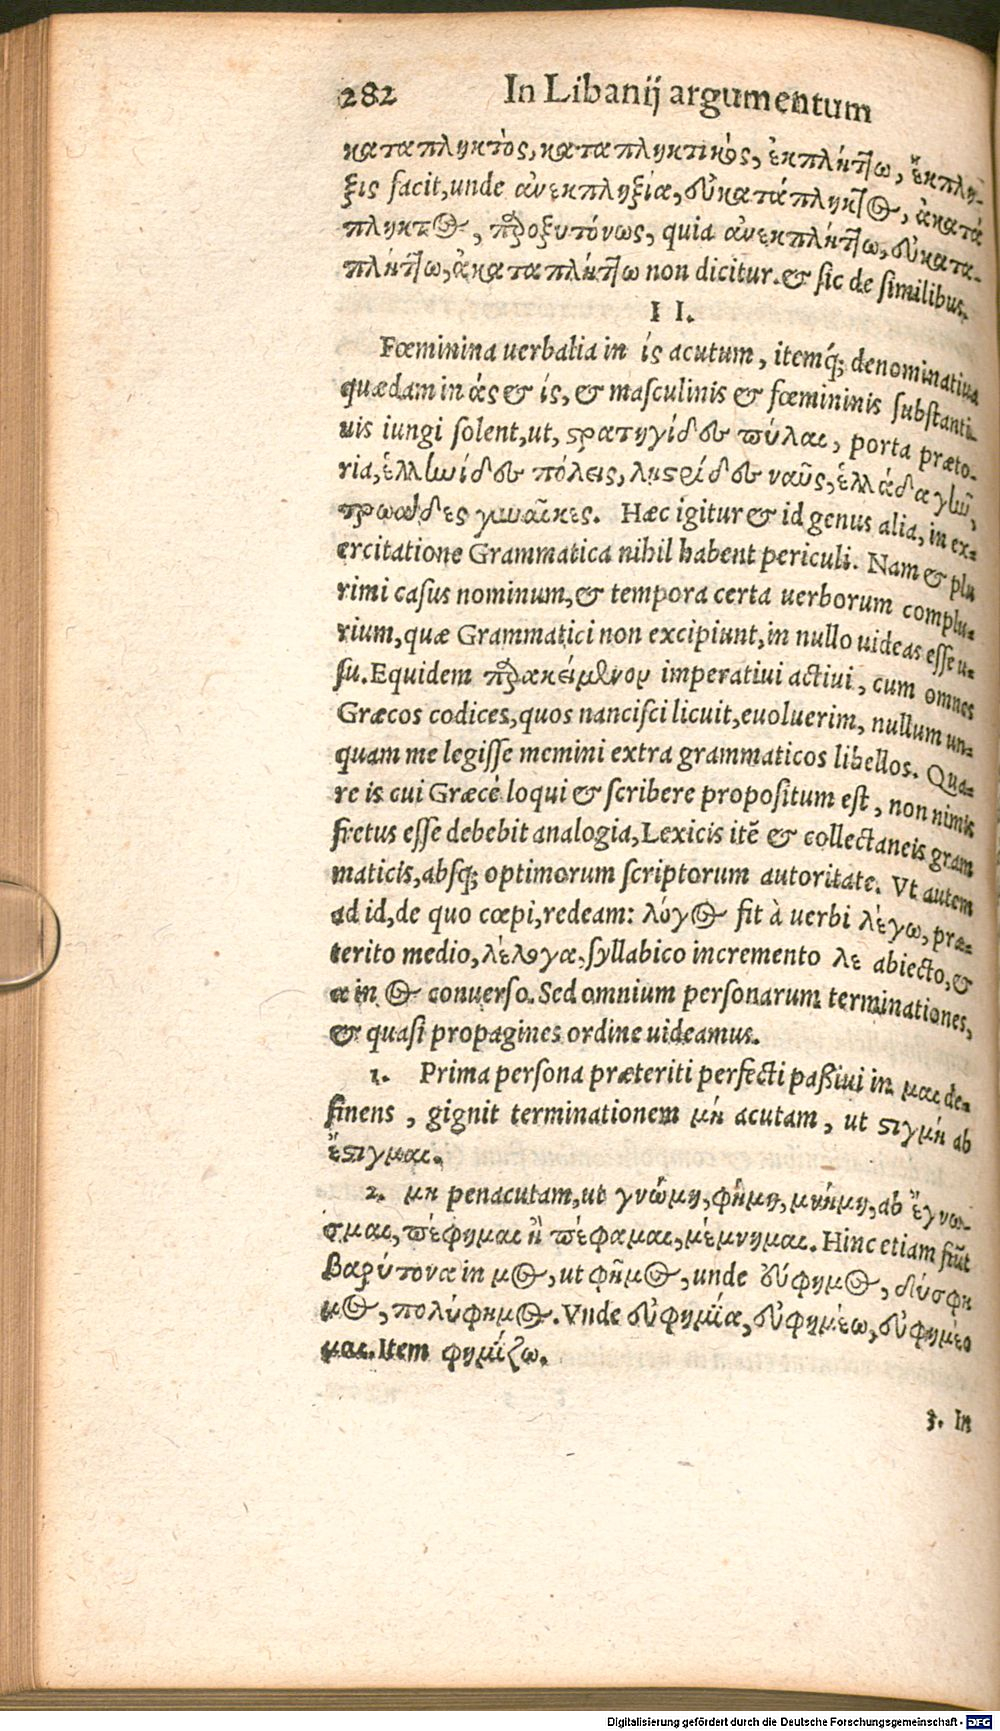 282 In Libanij argumentum
καταπληκτὸς, καταπληκτικὸς, ἐκπλήττω, ἔκπλη-
ξις facit, unde ἀνεκπληξία, εὐκατάπληκτος, ἀκατά
πληκτος, προξυτόνως, quia ἀνεκπλήττω, εὐκατα-
πλήττω, ἀκαταπλήττω non dicitur. & sic de similibus.
II.
Fœminina uerbalia in ίς acutum, itemq́; denominatiua
quædam in άς & ίς, & masculinis & fœmininis substanti-
uis iungi solent, ut, στρατηγίδες πύλαι, porta præto-
ria, ἑλληνίδες πόλεις, ληστρίδες ναῦς, ἑλλάδα γῆν,
τρωάδες γυναῖκες. Hæc igitur & id genus alia, in ex-
ercitatione Grammatica nihil habent periculi. Nam & plu
rimi casus nominum, & tempora certa uerborum complu-
rium, quæ Grammatici non excipiunt, in nullo uideas esse u-
su. Equidem παρακείμενον imperatiui actiui, cum omnes
Græcos codices, quos nancisci licuit, euoluerim, nullum un-
quam me legisse memini extra grammaticos libellos. Qua-
re is cui Græcè loqui & scribere propositum est, non nimis
fretus esse debebit analogia, Lexicis itē & collectaneis gram
maticis, absq; optimorum scriptorum autoritate. Vt autem
ad id, de quo cœpi, redeam: λόγος fit à uerbi λέγω, præ-
terito medio, λέλογα, syllabico incremento λε abiecto, &
α in ος conuerso. Sed omnium personarum terminationes,
& quasi propagines ordine uideamus.
1. Prima persona præteriti perfecti paßiui in μαι de-
sinens, gignit terminationem μή acutam, ut στιγμή ab
ἔστιγμαι.
2. μη penacutam, ut γνώμη, φήμη, μνήμη, ab ἔγνω-
σμαι, πέφημαι ἢ πέφαμαι, μέμνημαι. Hinc etiam fiūt
βαρύτονα in μος, ut φῆμος, unde εὔφημος, δύσφη
μος, πολύφημος. Vnde εὐφημία, εὐφημέω, εὐφημέο
μαι. Item φημίζω.
3. In
Digitalisierung gefördert durch die Deutsche Forschungsgemeinschaft - DFG